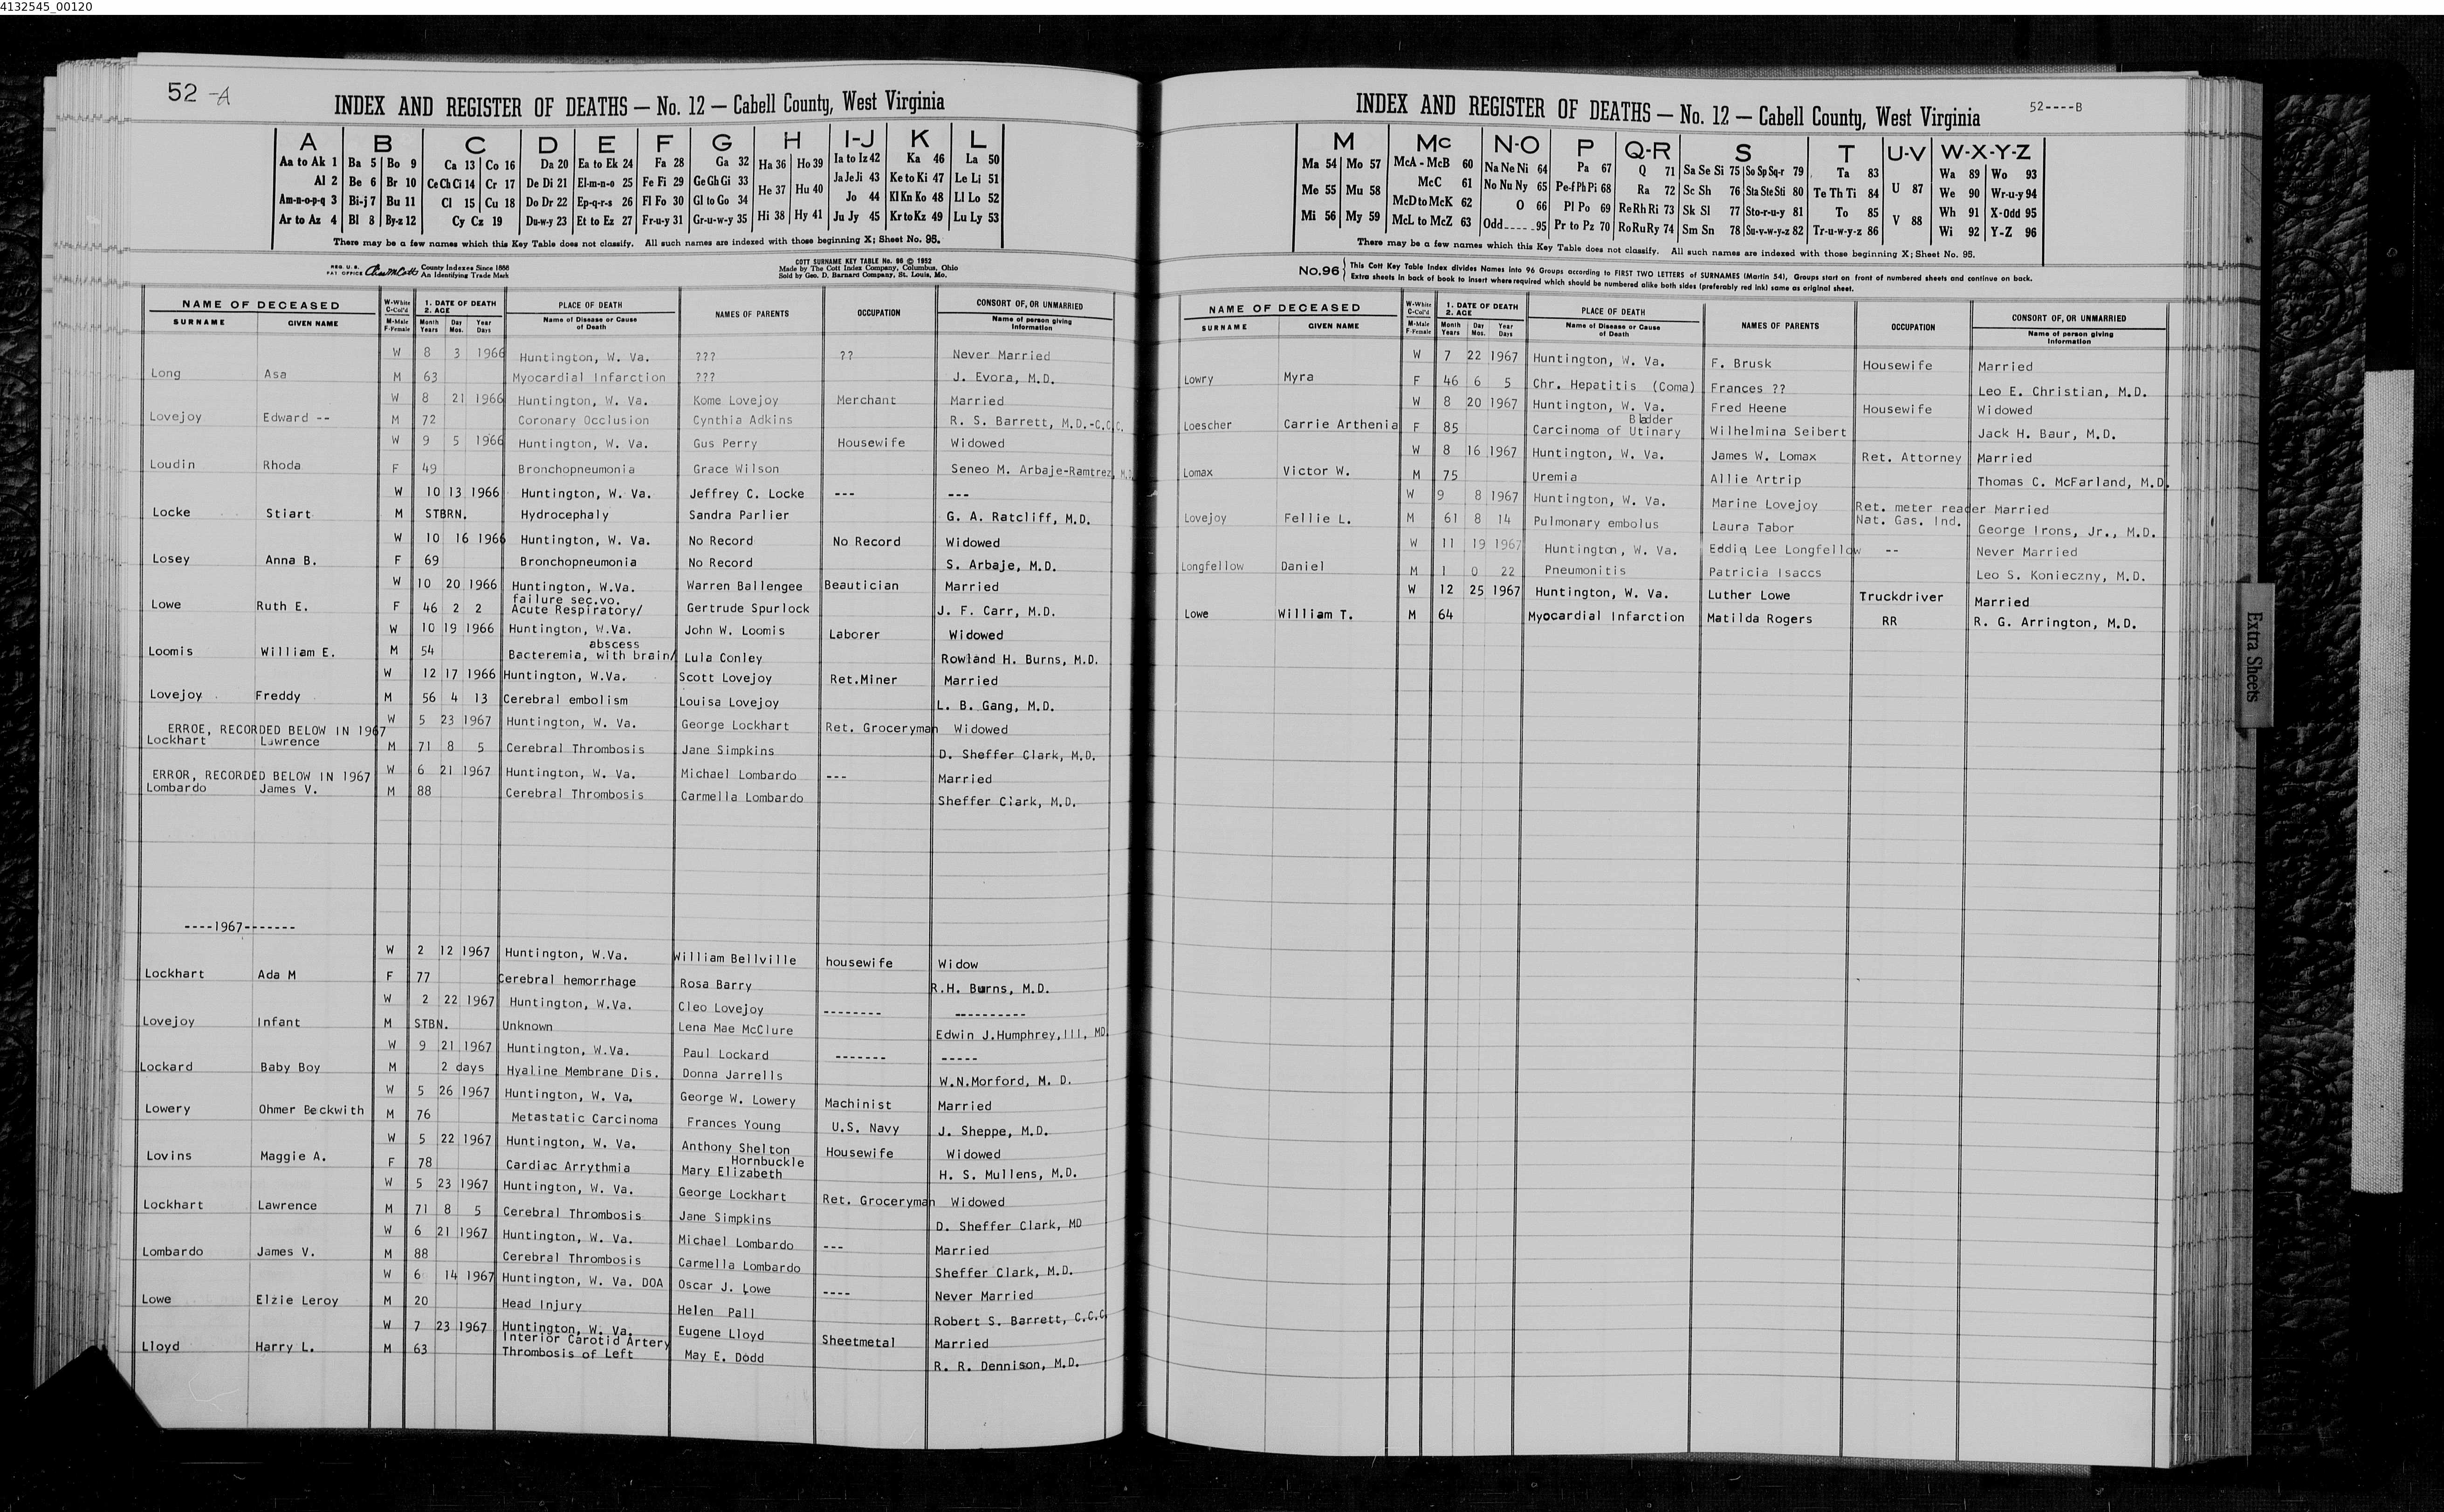 4132545_00120
52 -A
INDEX AND REGISTER OF DEATHS — No. 12 — Cabell County, West Virginia
A B C D E F G H I-J K L
Aa to Ak 1 Ba 5 Bo 9 Ca 13 Co 16 Da 20 Ea to Ek 24 Fa 28 Ga 32 Ha 36 Ho 39 Ia to Iz 42 Ka 46 La 50
Al 2 Be 6 Br 10 Ce Ch Ci 14 Cr 17 De Di 21 El-m-n-o 25 Fe Fi 29 Ge Gh Gi 33 He 37 Hu 40 Ja Je Ji 43 Ke to Ki 47 Le Li 51
Am-n-o-p-q 3 Bi-j 7 Bu 11 Cl 15 Cu 18 Do Dr 22 Ep-q-r-s 26 Fl Fo 30 Gl to Go 34 Jo 44 Kl Kn Ko 48 Ll Lo 52
Ar to Az 4 Bl 8 By-z 12 Cy Cz 19 Du-w-y 23 Et to Ez 27 Fr-u-y 31 Gr-u-w-y 35 Hi 38 Hy 41 Ju Jy 45 Kr to Kz 49 Lu Ly 53
There may be a few names which this Key Table does not classify. All such names are indexed with those beginning X; Sheet No. 95.
REG. U.S. PAT. OFFICE County Indexes Since 1888 An Identifying Trade Mark
COTT SURNAME KEY TABLE No. 96 © 1952
Made by The Cott Index Company, Columbus, Ohio
Sold by Geo. D. Barnard Company, St. Louis, Mo.
NAME OF DECEASED W-White C-Col'd 1. DATE OF DEATH 2. AGE PLACE OF DEATH NAMES OF PARENTS OCCUPATION CONSORT OF, OR UNMARRIED
SURNAME GIVEN NAME M-Male F-Female Month Years Day Mos. Year Days Name of Disease or Cause of Death Name of person giving Information
W 8 3 1966 Huntington, W. Va. ??? ?? Never Married
Long Asa M 63 Myocardial Infarction ??? J. Evora, M.D.
W 8 21 1966 Huntington, W. Va. Kome Lovejoy Merchant Married
Lovejoy Edward -- M 72 Coronary Occlusion Cynthia Adkins R. S. Barrett, M.D.-C.C.C.
W 9 5 1966 Huntington, W. Va. Gus Perry Housewife Widowed
Loudin Rhoda F 49 Bronchopneumonia Grace Wilson Seneo M. Arbaje-Ramtrez, M.D.
W 10 13 1966 Huntington, W. Va. Jeffrey C. Locke --- ---
Locke Stiart M STBRN. Hydrocephaly Sandra Parlier G. A. Ratcliff, M.D.
W 10 16 1966 Huntington, W. Va. No Record No Record Widowed
Losey Anna B. F 69 Bronchopneumonia No Record S. Arbaje, M.D.
W 10 20 1966 Huntington, W.Va. Warren Ballengee Beautician Married
failure sec.vo.
Lowe Ruth E. F 46 2 2 Acute Respiratory/ Gertrude Spurlock J. F. Carr, M.D.
W 10 19 1966 Huntington, W.Va. John W. Loomis Laborer Widowed
abscess
Loomis William E. M 54 Bacteremia, with brain/ Lula Conley Rowland H. Burns, M.D.
W 12 17 1966 Huntington, W.Va. Scott Lovejoy Ret.Miner Married
Lovejoy Freddy M 56 4 13 Cerebral embolism Louisa Lovejoy L. B. Gang, M.D.
W 5 23 1967 Huntington, W. Va. George Lockhart Ret. Groceryman Widowed
ERROE, RECORDED BELOW IN 1967
Lockhart Lawrence M 71 8 5 Cerebral Thrombosis Jane Simpkins D. Sheffer Clark, M.D.
W 6 21 1967 Huntington, W. Va. Michael Lombardo --- Married
ERROR, RECORDED BELOW IN 1967
Lombardo James V. M 88 Cerebral Thrombosis Carmella Lombardo Sheffer Clark, M.D.
----1967-------
W 2 12 1967 Huntington, W.Va. William Bellville housewife Widow
Lockhart Ada M F 77 Cerebral hemorrhage Rosa Barry R.H. Burns, M.D.
W 2 22 1967 Huntington, W.Va. Cleo Lovejoy -------- ----------
Lovejoy Infant M STBN. Unknown Lena Mae McClure Edwin J.Humphrey,III, MD
W 9 21 1967 Huntington, W.Va. Paul Lockard ------- -----
Lockard Baby Boy M 2 days Hyaline Membrane Dis. Donna Jarrells W.N.Morford, M. D.
W 5 26 1967 Huntington, W. Va. George W. Lowery Machinist Married
Lowery Ohmer Beckwith M 76 Metastatic Carcinoma Frances Young U.S. Navy J. Sheppe, M.D.
W 5 22 1967 Huntington, W. Va. Anthony Shelton Housewife Widowed
Hornbuckle
Lovins Maggie A. F 78 Cardiac Arrythmia Mary Elizabeth H. S. Mullens, M.D.
W 5 23 1967 Huntington, W. Va. George Lockhart Ret. Groceryman Widowed
Lockhart Lawrence M 71 8 5 Cerebral Thrombosis Jane Simpkins D. Sheffer Clark, MD
W 6 21 1967 Huntington, W. Va. Michael Lombardo --- Married
Lombardo James V. M 88 Cerebral Thrombosis Carmella Lombardo Sheffer Clark, M.D.
W 6 14 1967 Huntington, W. Va. DOA Oscar J. Lowe ---- Never Married
Lowe Elzie Leroy M 20 Head Injury Helen Pall Robert S. Barrett, C.C.C.
W 7 23 1967 Huntington, W. Va. Eugene Lloyd Sheetmetal Married
Interior Carotid Artery
Lloyd Harry L. M 63 Thrombosis of Left May E. Dodd R. R. Dennison, M.D.
INDEX AND REGISTER OF DEATHS — No. 12 — Cabell County, West Virginia
52----B
M Mc N-O P Q-R S T U-V W-X-Y-Z
Ma 54 Mo 57 McA - McB 60 Na Ne Ni 64 Pa 67 Q 71 Sa Se Si 75 So Sp Sq-r 79 Ta 83 U 87 Wa 89 Wo 93
Me 55 Mu 58 McC 61 No Nu Ny 65 Pe-f Ph Pi 68 Ra 72 Sc Sh 76 Sta Ste Sti 80 Te Th Ti 84 We 90 Wr-u-y 94
McD to McK 62 O 66 Pl Po 69 Re Rh Ri 73 Sk Sl 77 Sto-r-u-y 81 To 85 V 88 Wh 91 X-Odd 95
Mi 56 My 59 McL to McZ 63 Odd-----95 Pr to Pz 70 Ro Ru Ry 74 Sm Sn 78 Su-v-w-y-z 82 Tr-u-w-y-z 86 Wi 92 Y-Z 96
There may be a few names which this Key Table does not classify. All such names are indexed with those beginning X; Sheet No. 95.
No.96 This Cott Key Table Index divides Names into 96 Groups according to FIRST TWO LETTERS of SURNAMES (Martin 54), Groups start on front of numbered sheets and continue on back.
Extra sheets in back of book to insert where required which should be numbered alike both sides (preferably red ink) same as original sheet.
NAME OF DECEASED W-White C-Col'd 1. DATE OF DEATH 2. AGE PLACE OF DEATH NAMES OF PARENTS OCCUPATION CONSORT OF, OR UNMARRIED
SURNAME GIVEN NAME M-Male F-Female Month Years Day Mos. Year Days Name of Disease or Cause of Death Name of person giving Information
W 7 22 1967 Huntington, W. Va. F. Brusk Housewife Married
Lowry Myra F 46 6 5 Chr. Hepatitis (Coma) Frances ?? Leo E. Christian, M.D.
W 8 20 1967 Huntington, W. Va. Fred Heene Housewife Widowed
Bladder
Loescher Carrie Arthenia F 85 Carcinoma of Utinary Wilhelmina Seibert Jack H. Baur, M.D.
W 8 16 1967 Huntington, W. Va. James W. Lomax Ret. Attorney Married
Lomax Victor W. M 75 Uremia Allie Artrip Thomas C. McFarland, M.D.
W 9 8 1967 Huntington, W. Va. Marine Lovejoy Ret. meter reader Married
Lovejoy Fellie L. M 61 8 14 Pulmonary embolus Laura Tabor Nat. Gas. Ind. George Irons, Jr., M.D.
W 11 19 1967 Huntington, W. Va. Eddiq Lee Longfellow -- Never Married
Longfellow Daniel M 1 0 22 Pneumonitis Patricia Isaccs Leo S. Konieczny, M.D.
W 12 25 1967 Huntington, W. Va. Luther Lowe Truckdriver Married
Lowe William T. M 64 Myocardial Infarction Matilda Rogers RR R. G. Arrington, M.D.
Extra Sheets